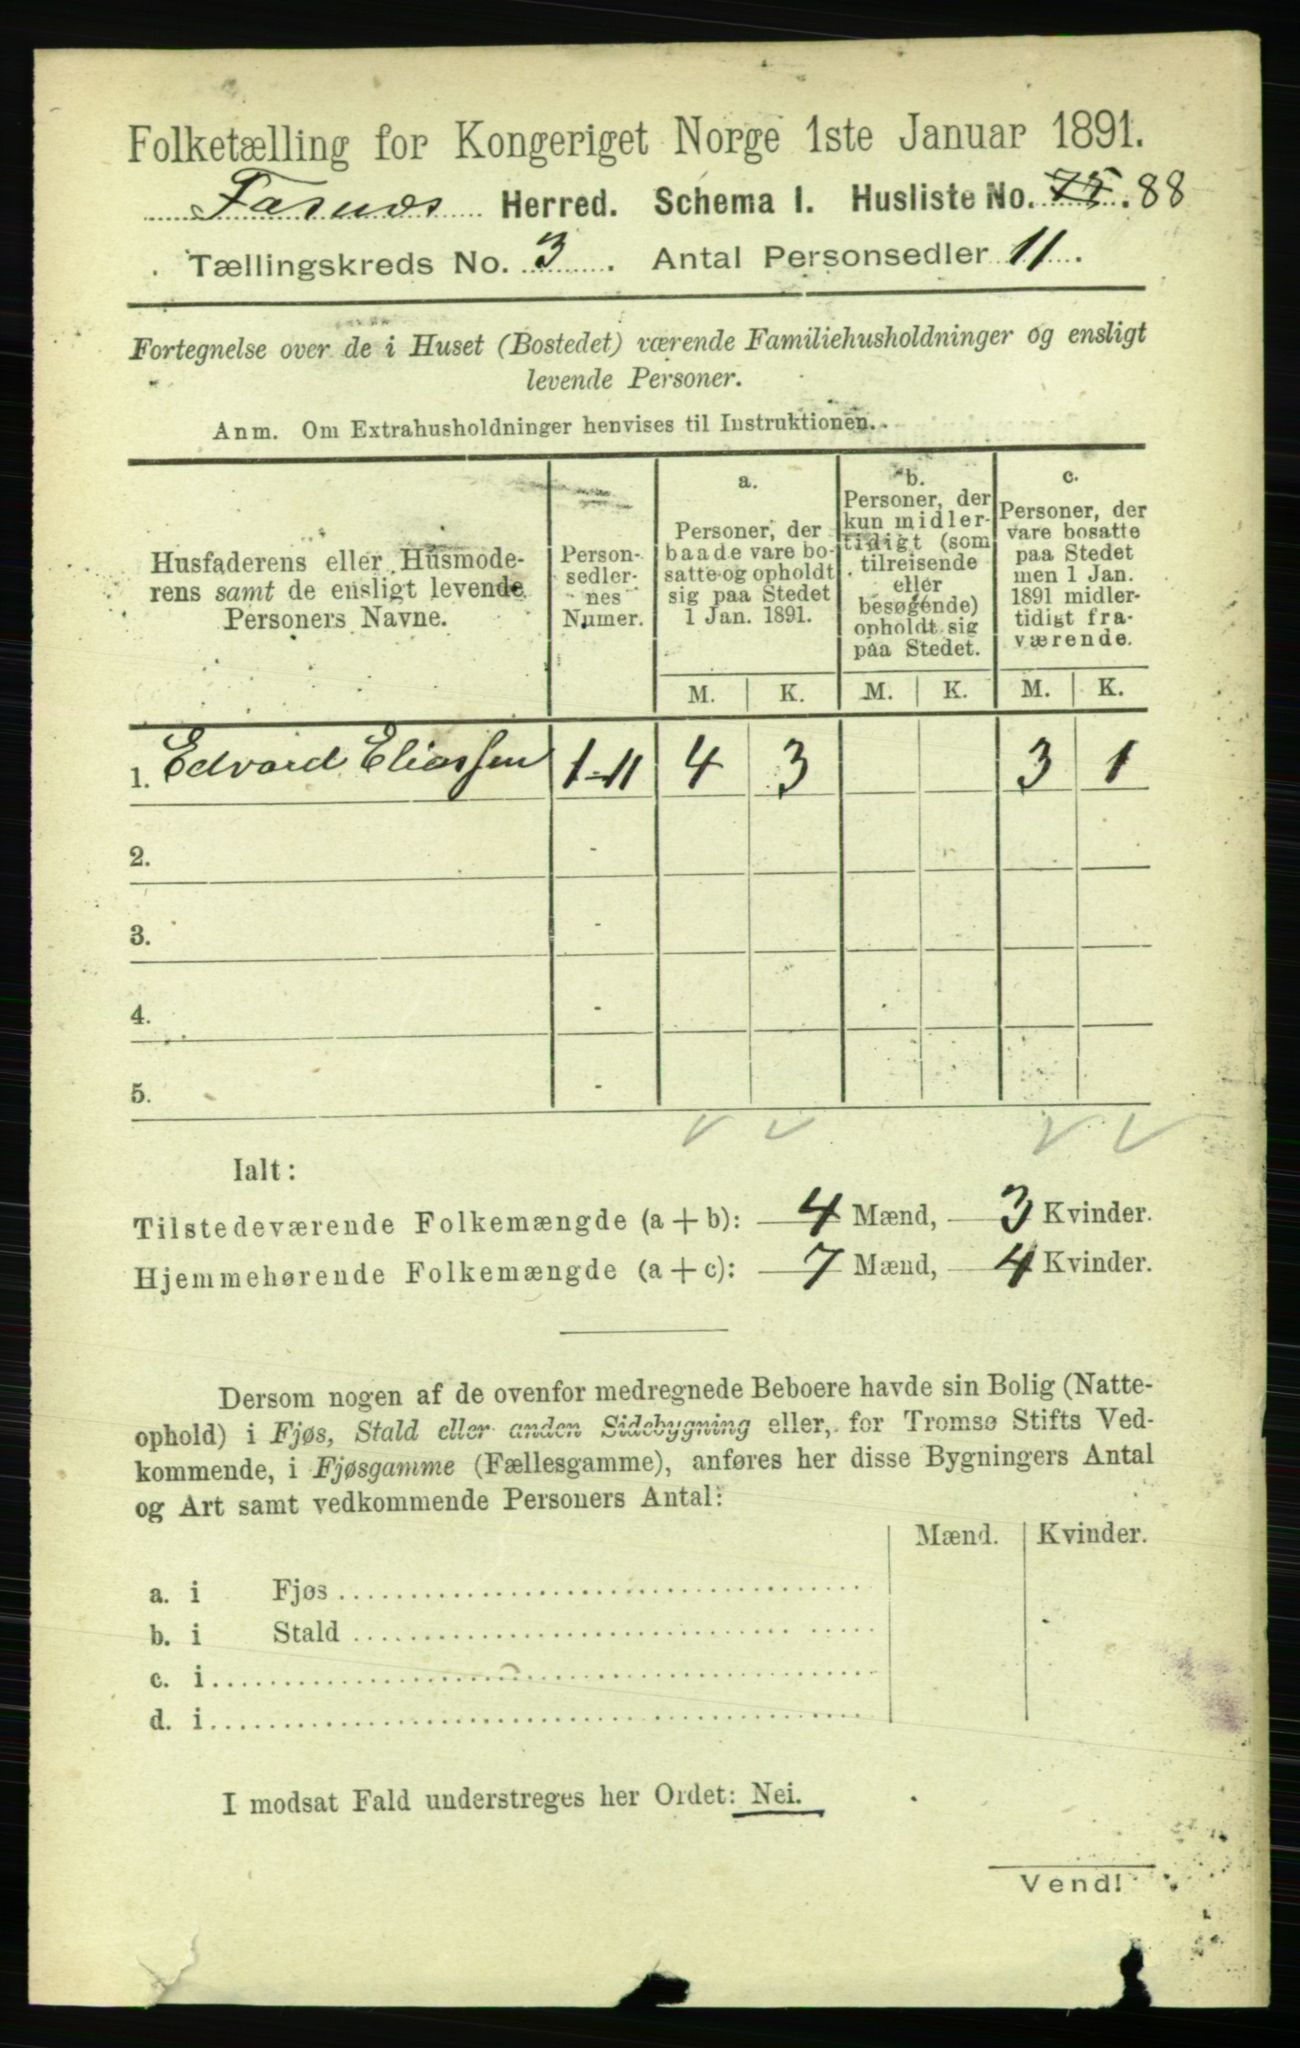 Folketælling for Kongeriget Norge 1ste Januar 1891.
Herred. Schema I. Husliste No. 75. 88
Tællingskreds No. 3. Antal Personsedler 11.
Fortegnelse over de i Huset (Bostedet) værende Familiehusholdninger og ensligt
levende Personer.
Anm. Om Extrahusholdninger henvises til Instruktionen.
Husfaderens eller Husmode-
rens samt de ensligt levende
Personers Navne.
Person-
sedler-
nes
Numer.
a.
Personer, der
baade vare bo-
satte og opholdt
sig paa Stedet
1 Jan. 1891.
b.
Personer, der
kun midler-
tidigt (som
tilreisende
eller
besøgende)
opholdt sig
paa Stedet.
c.
Personer, der
vare bosatte
paa Stedet
men 1 Jan.
1891 midler-
tidigt fra-
værende.
M. K. M. K. M. K.
1. Edvard Eliassen 1-11 4 3 3 1
2. -
3. -
4. -
5. -
Ialt:
Tilstedeværende Folkemængde (a + b): 4 Mænd, 3 Kvinder.
Hjemmehørende Folkemængde (a + c): 7 Mænd, 4 Kvinder.
Dersom nogen af de ovenfor medregnede Beboere havde sin Bolig (Natte-
ophold) i Fjøs, Stald eller anden Sidebygning eller, for Tromsø Stifts Ved-
kommende, i Fjøsgamme (Fællesgamme), anføres her disse Bygningers Antal
og Art samt vedkommende Personers Antal:
Mænd. Kvinder.
a. i Fjøs
b. i Stald
c. i
d. i
I modsat Fald understreges her Ordet: Nei.
Vend!